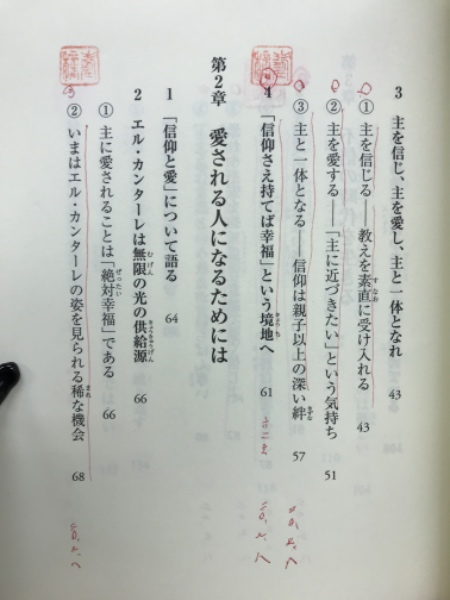 3 主を信じ、主を愛し、主と一体となれ 43
① 主を信じる――教えを素直に受け入れる 43
② 主を愛する――「主に近づきたい」という気持ち 51
③ 主と一体となる――信仰は親子以上の深い絆 57
4 「信仰さえ持てば幸福」という境地へ 61
第2章 愛される人になるためには
1 「信仰と愛」について語る 64
2 エル・カンターレは無限の光の供給源 66
① 主に愛されることは「絶対幸福」である 66
② いまはエル・カンターレの姿を見られる稀な機会 68